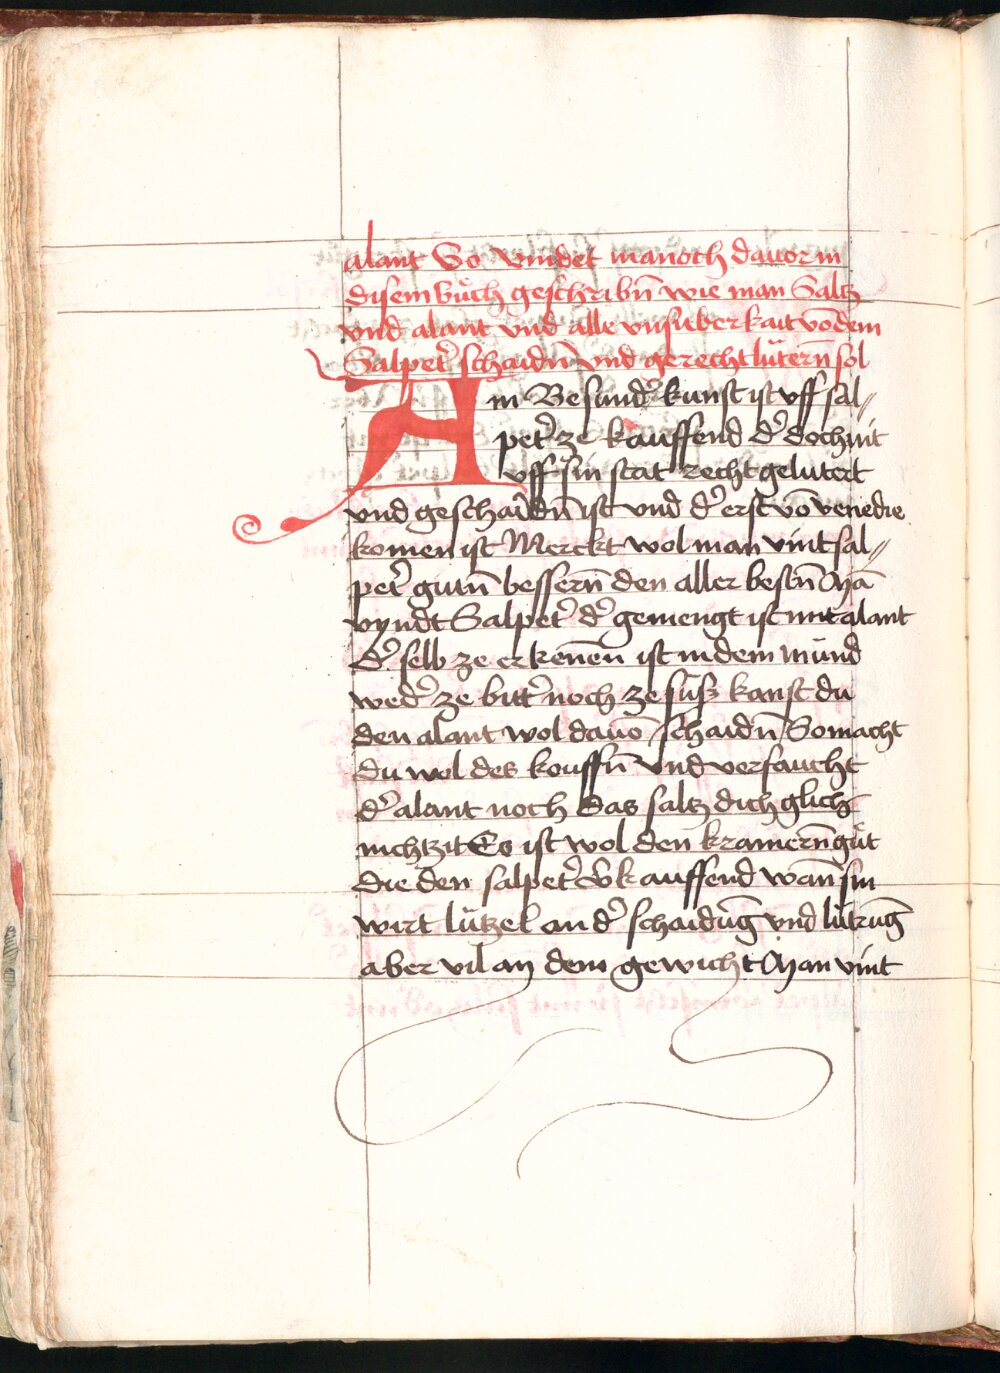 alant So vindet man och dauor in
disem bůch geschribn̄ wie man Saltz
vnd alant vnd alle vnsuberkait vō dem
Salpet̄ schaidn̄ vnd gerecht lütern̄ sol
Ain Besundr̄ kunst ist vff sal⸗
pet̄ ze kauffend d̄ doch nit
vff sin stat recht gelutert
vnd geschaidn̄ ist vnd d̄ erst vō venedie
komen ist Merckt wol man vint sal⸗
pet̄ gutn̄ bessern̄ den aller bestn̄ Mā
vyndt Salpet̄ d̄ gemengt ist mit alant
d̄ selb ze erkenēn ist in dem mund
wed̄ ze bitt̄ noch ze süsz kanst du
den alant wol dauō schaidn̄ So macht
du wol des kouffn̄ vnd versaucht
d̄ alant noch das saltz dich glich
nichtzit Es ist wol den kramern̄ gůt
die den salpet̄ v̄kauffend wann̄ sin
wirt lützel an d̄ schaidūg vnd lütrūg
aber vil an dem gewicht Man vint